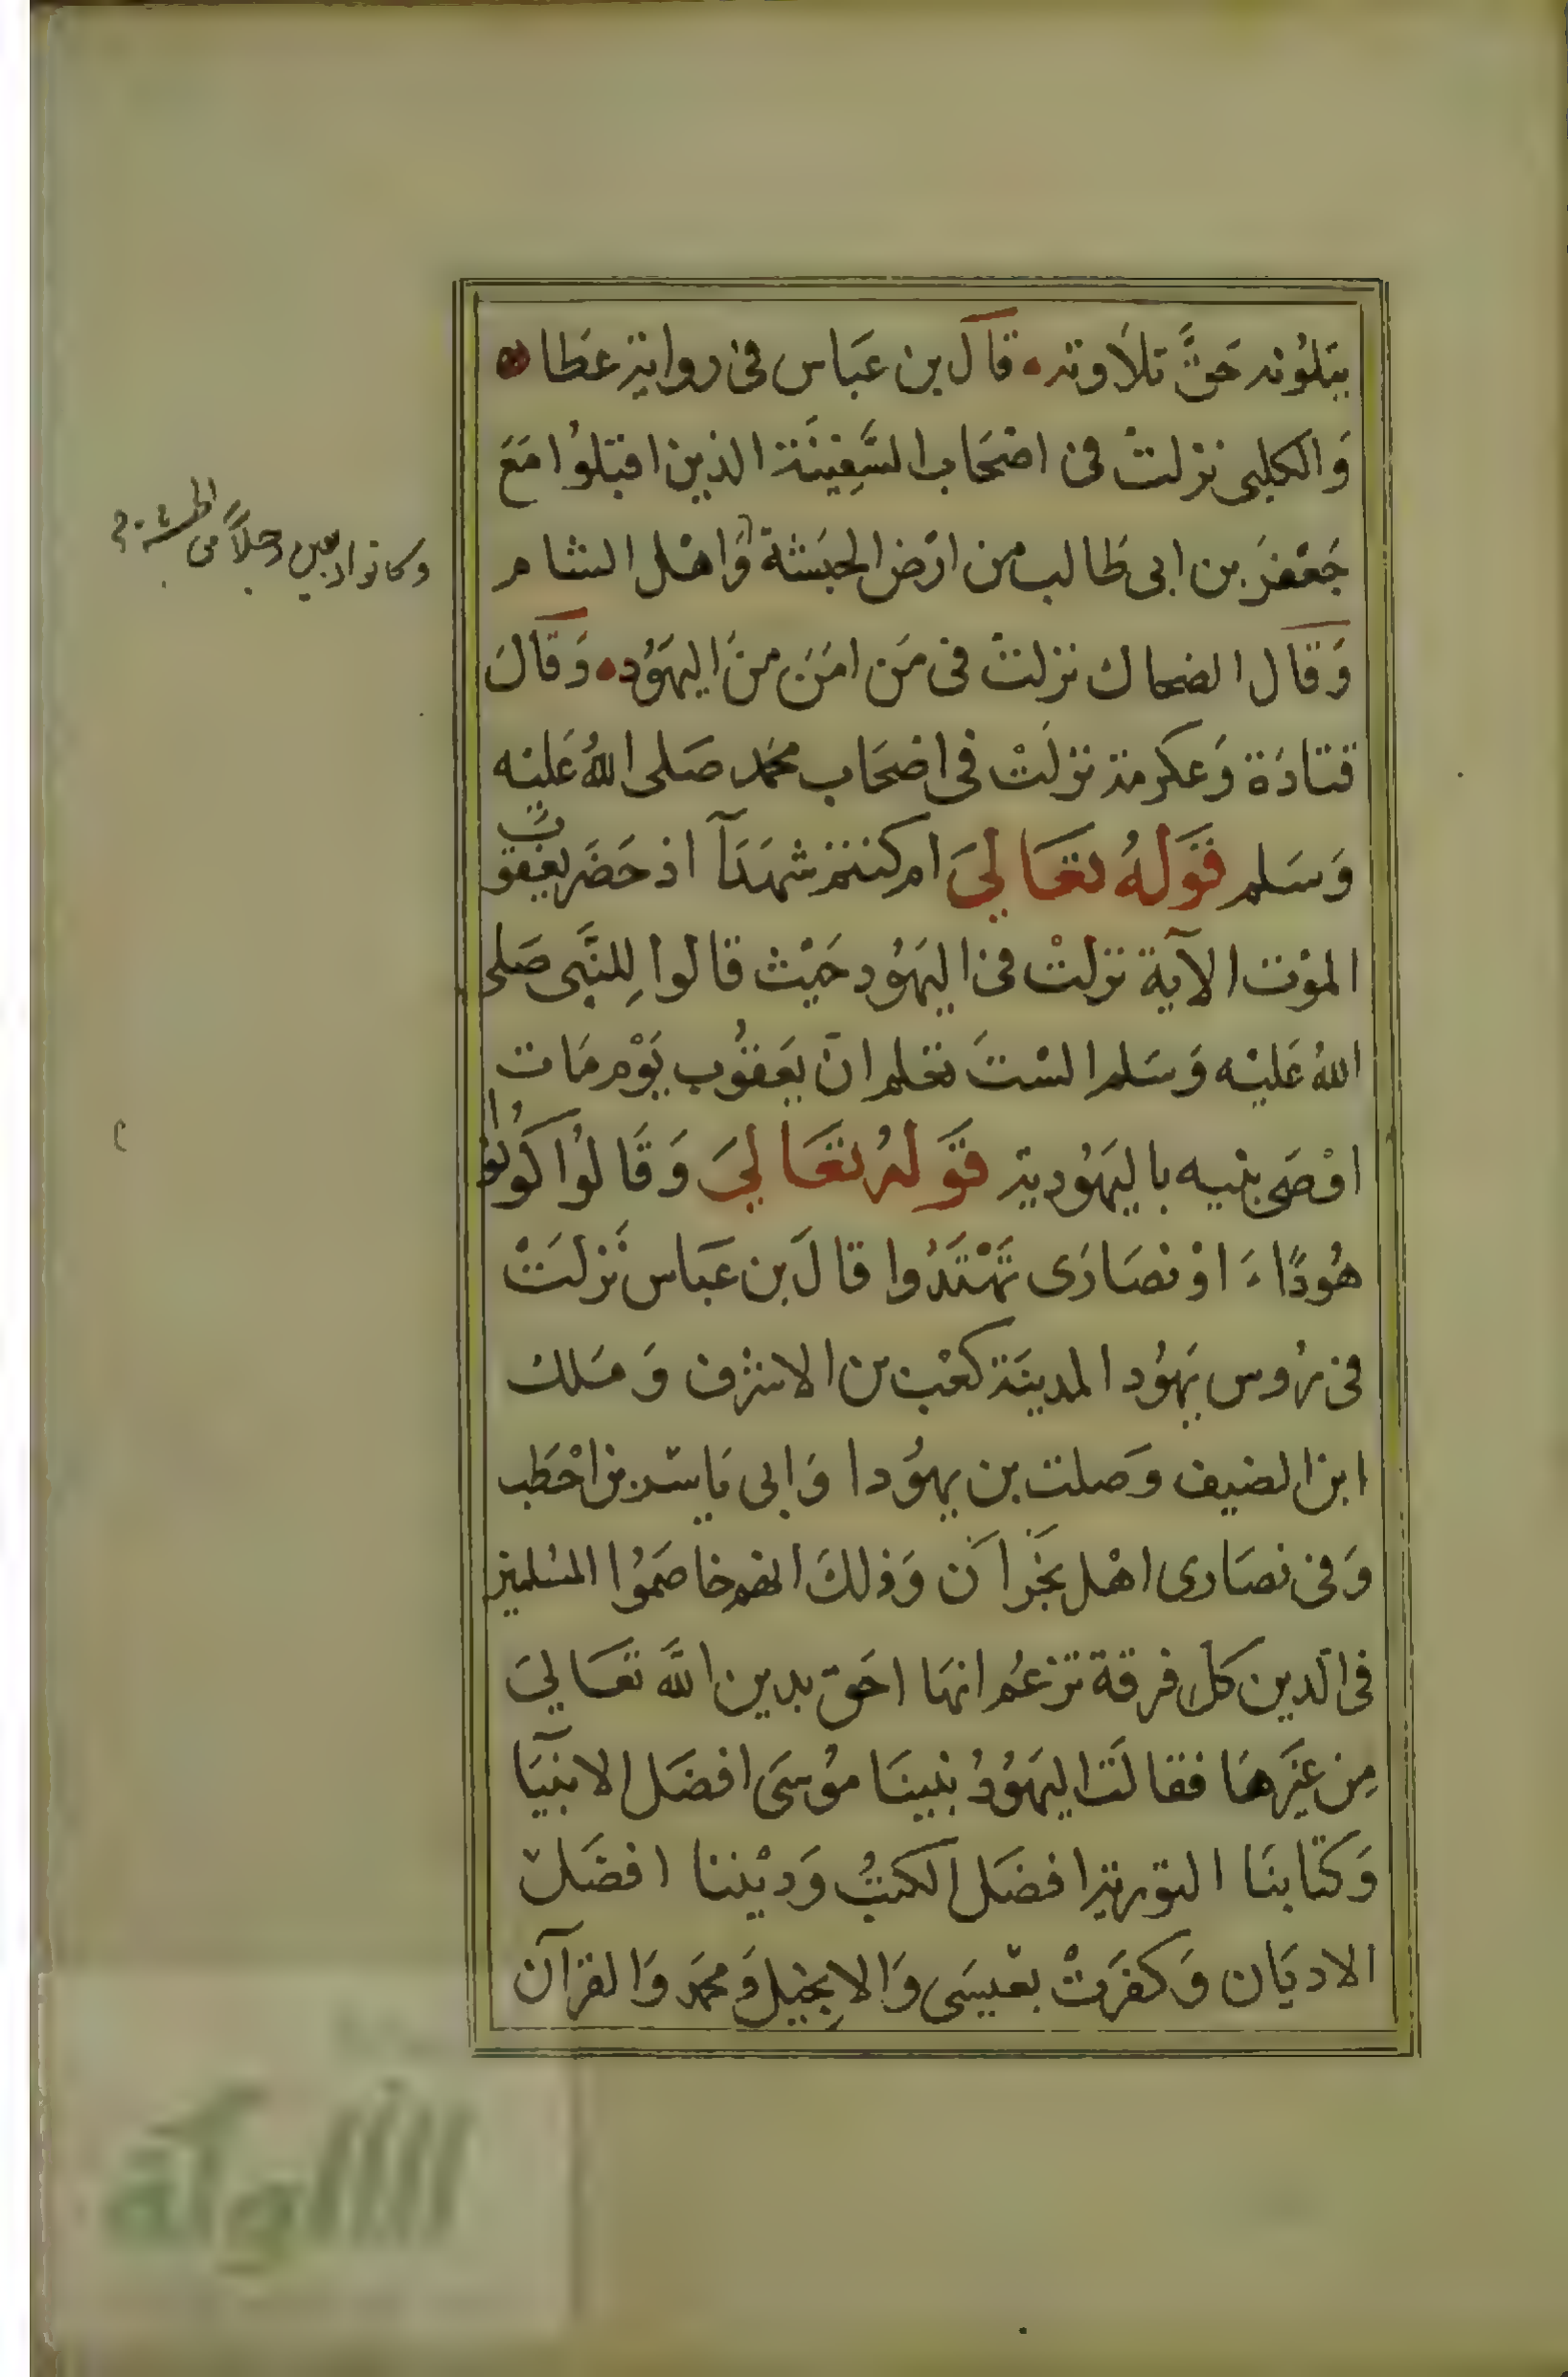 يتلونه حَقَّ تلاوته قالَ بن عَبَاس فى رواية عَطا
وَالكلبى نزلتْ فى اصْحَاب السَّفِينَة الذين اقبَلوُا مَعَ
جَعْفَر بن ابى طَالب من ارْض الحبَشَة وَاهْل الشام
وَقال الضحاك نزلتْ فى مَن امَنَ منَ اليهَوُد وَقَالَ
قتادَة وَعكرمة نزلَتْ فى اصْحَاب محمَد صَلى اللهُ عَليْه
وَسَلم قَولهُ تعَالىَ ام كنتم شهَدَآ اذ حَضَر يعْقوبَ
الموْت الآية نزلتْ فى اليَهوُد حَيْث قالوا لِلنَّبى صَلى
اللهُ عَليْه وَسَلم الستَ تعْلم انّ يَعقوُب يَوْم مَات
اوْصَى بنيه باليَهوُدية قَولهُ تعَالىَ وَقَالوُا كوُنوُا
هُودًا ءَ اوْ نصَارَى تَهْتَدُوا قالَ بن عَبَاس نَزلتْ
فى رُوس يَهوُد المدينَة كعْب بن الاشرْف وَمَلك
ابن الضيف وَصلت بن يهوُدا وَابى يَاسر بن احْطَب
وَفى نصَارى اهْل نَجْرآن وَذلكَ انهم خاصَموُا المسْلمين
فى الّدين كل فرقة تَزعُم انهَا احَق بدين اللَّه تعَالىَ
مِن غيَرهَا فقالَت اليَهوُدُ نبينَا موُسَى افضَل الانبيَا
وَكتَابنَا التورية افضَل الكتُب وَديْننا افضَل
الاديَان وَكفَرتْ بعْيسَى وَالاِنجيل وَمحَمَد وَالقرآن
وكانوا اربعين رجلاً من الحبشة